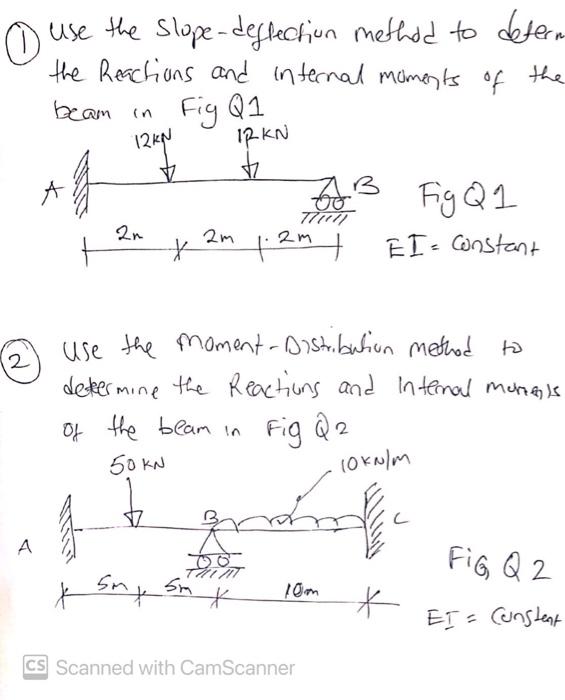 ① Use the slope-deflection method to determ
the Reactions and internal moments of the
beam in Fig Q1
12KN 12KN
A B Fig Q1
2m 2m 2m EI = Constant
② Use the Moment-Distribution method to
determine the Reactions and Internal moments
of the beam in Fig Q2
50KN 10KN/m
A B C
5m 5m 10m Fig Q2
EI = Constant
CS Scanned with CamScanner